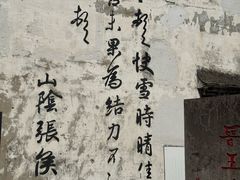 頓首快雪時晴佳
未果為結力不
頓首
山陰張侯
晉王